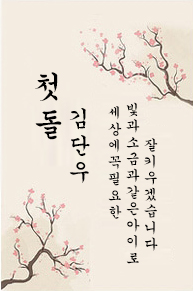 첫돌
김단우
세상에꼭필요한
빛과소금과같은아이로
잘키우겠습니다